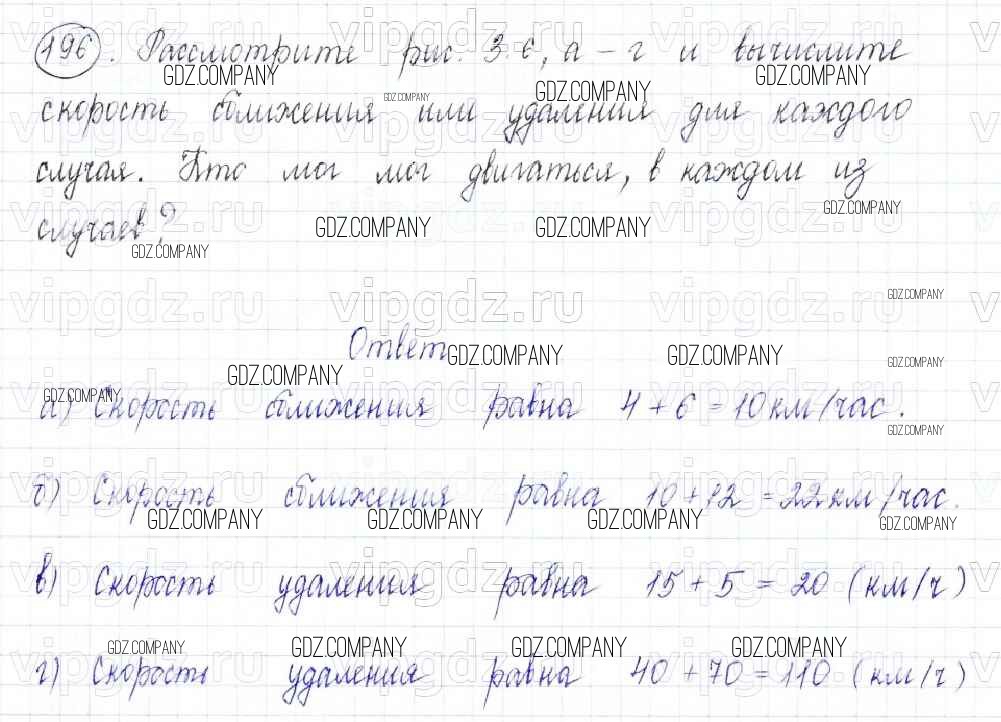 196. Рассмотрите рис. 3.6, а - г и вычислите
скорость сближения или удаления для каждого
случая. Кто мог мог двигаться, в каждом из
случаев?
Ответ
а) Скорость сближения равна 4 + 6 = 10 км/час.
б) Скорость сближения равна 10 + 12 = 22 км/час.
в) Скорость удаления равна 15 + 5 = 20 (км/ч)
г) Скорость удаления равна 40 + 70 = 110 (км/ч)
GDZ.COMPANY
vipgdz.ru